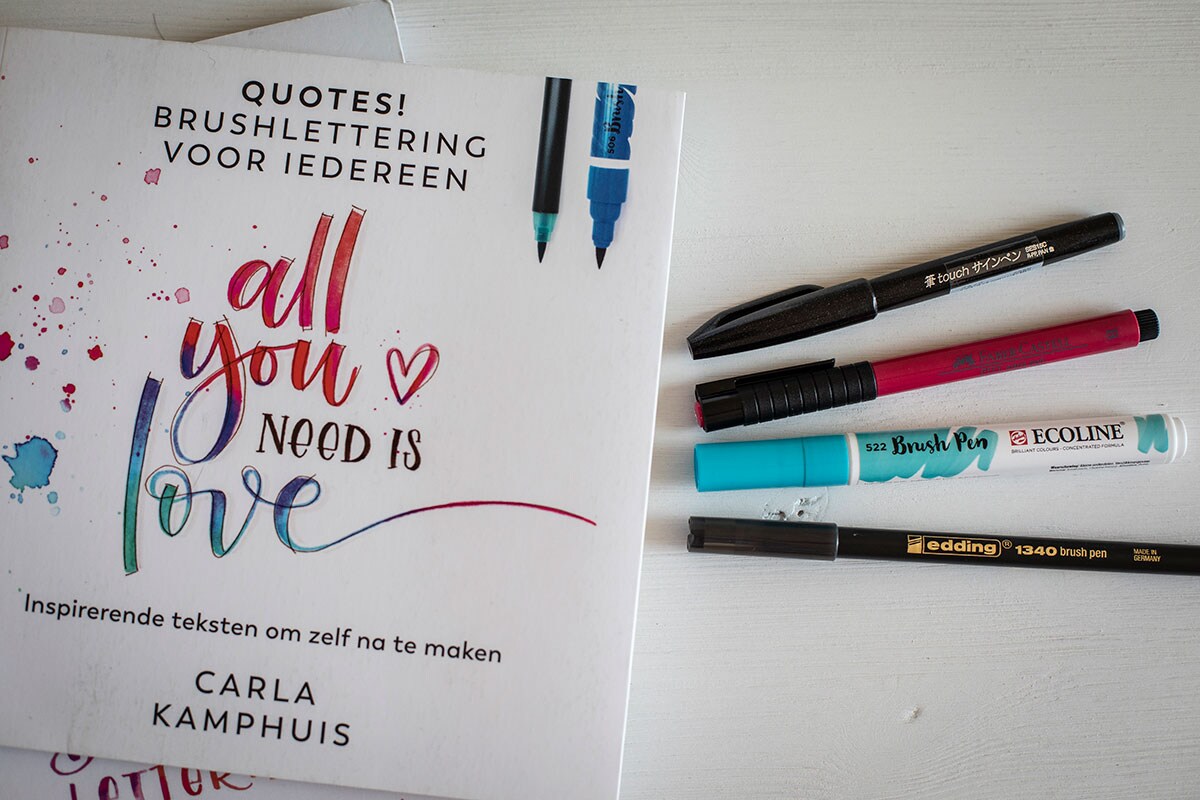 QUOTES!
BRUSHLETTERING
VOOR IEDEREEN
all
you
NEED IS
love
Inspirerende teksten om zelf na te maken
CARLA
KAMPHUIS
LETTER
506 Brush
touch サインペン
SES15C
522 Brush Pen
ECOLINE
BRILLIANT COLOURS - CONCENTRATED FORMULA
edding® 1340 brush pen
MADE IN
GERMANY